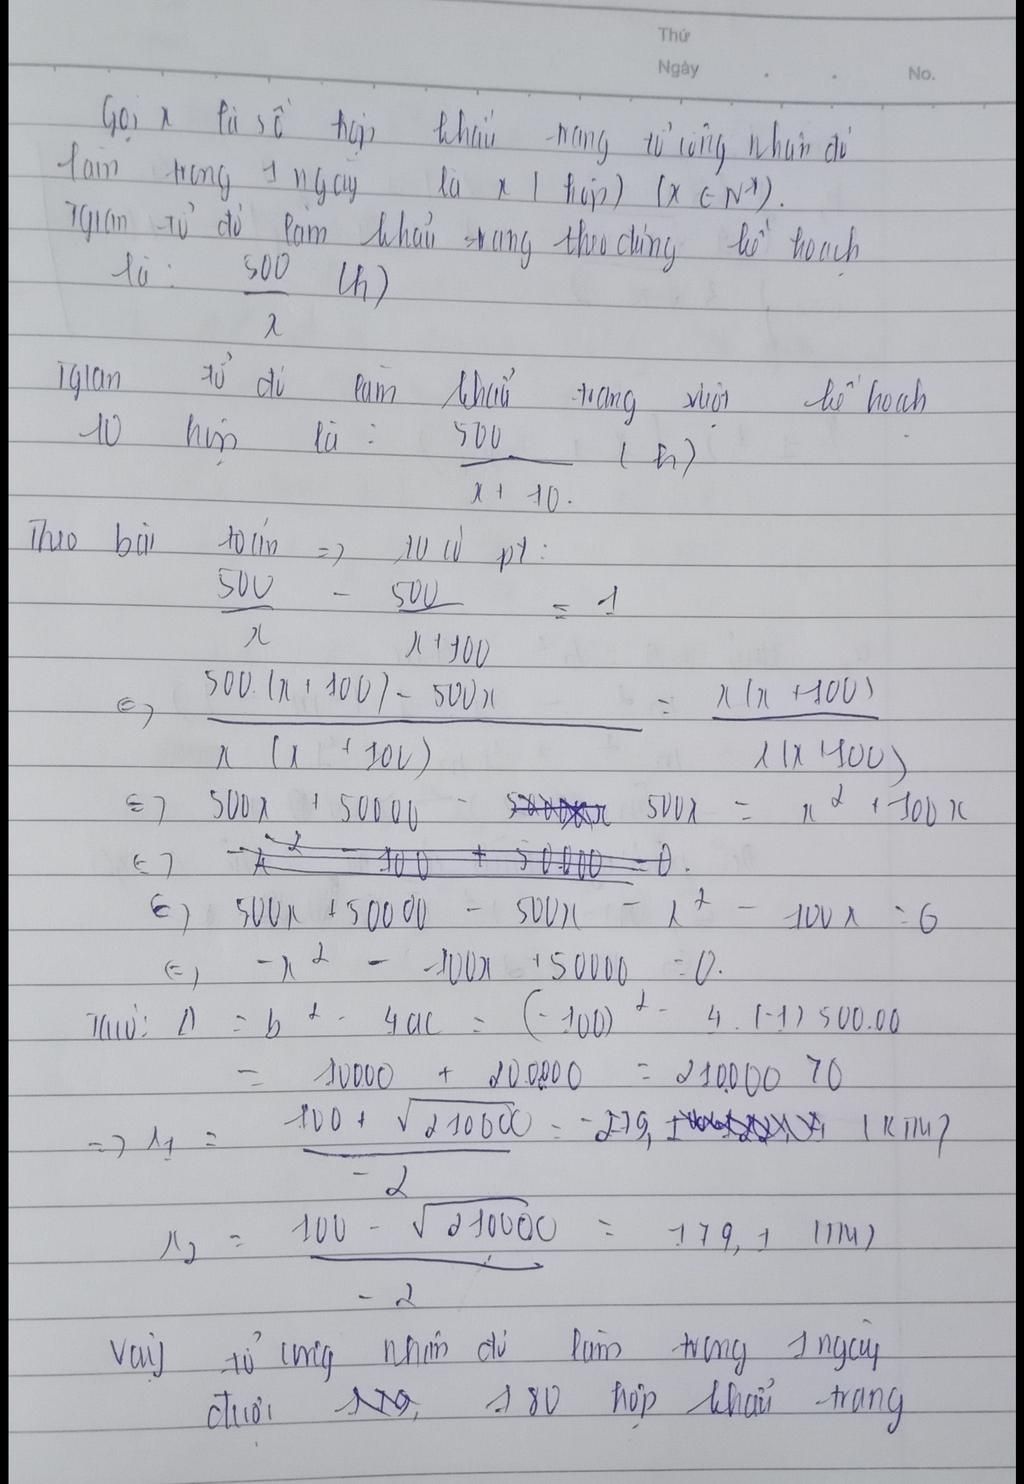 Thứ
Ngày . . No.
Gọi x là số hộp khẩu trang tổ công nhân đó
làm trong 1 ngày là x ( hộp) (x ∈ N*).
Tgian tổ đó làm khẩu trang theo đúng kế hoạch
là: 500/x (h)
Tgian tổ đó làm khẩu trang vượt kế hoạch
10 hộp là : 500/(x + 10. (h)
Theo bài toán => ta có pt:
500/x - 500/(x+100) = 1
<=> (500.(x+100) - 500x)/(x (x +100)) = (x(x +100))/(x(x+100))
<=> 500x + 50000 - 500x = x² + 100x
<=> -x² - 100 + 50000 = 0.
<=> 500x + 50000 - 500x - x² - 100x = 0
<=> -x² - 100x + 50000 = 0.
Δ = b² - 4ac = (-100)² - 4.(-1) 500.00
= 10000 + 200000 = 210000 >0
=> x₁ = (100 + √210000)/-2 = -279, (KTM)
x₂ = (100 - √210000)/-2 = 179,1 (TM)
Vậy tổ công nhân đó làm trong 1 ngày
được 179, 180 hộp khẩu trang